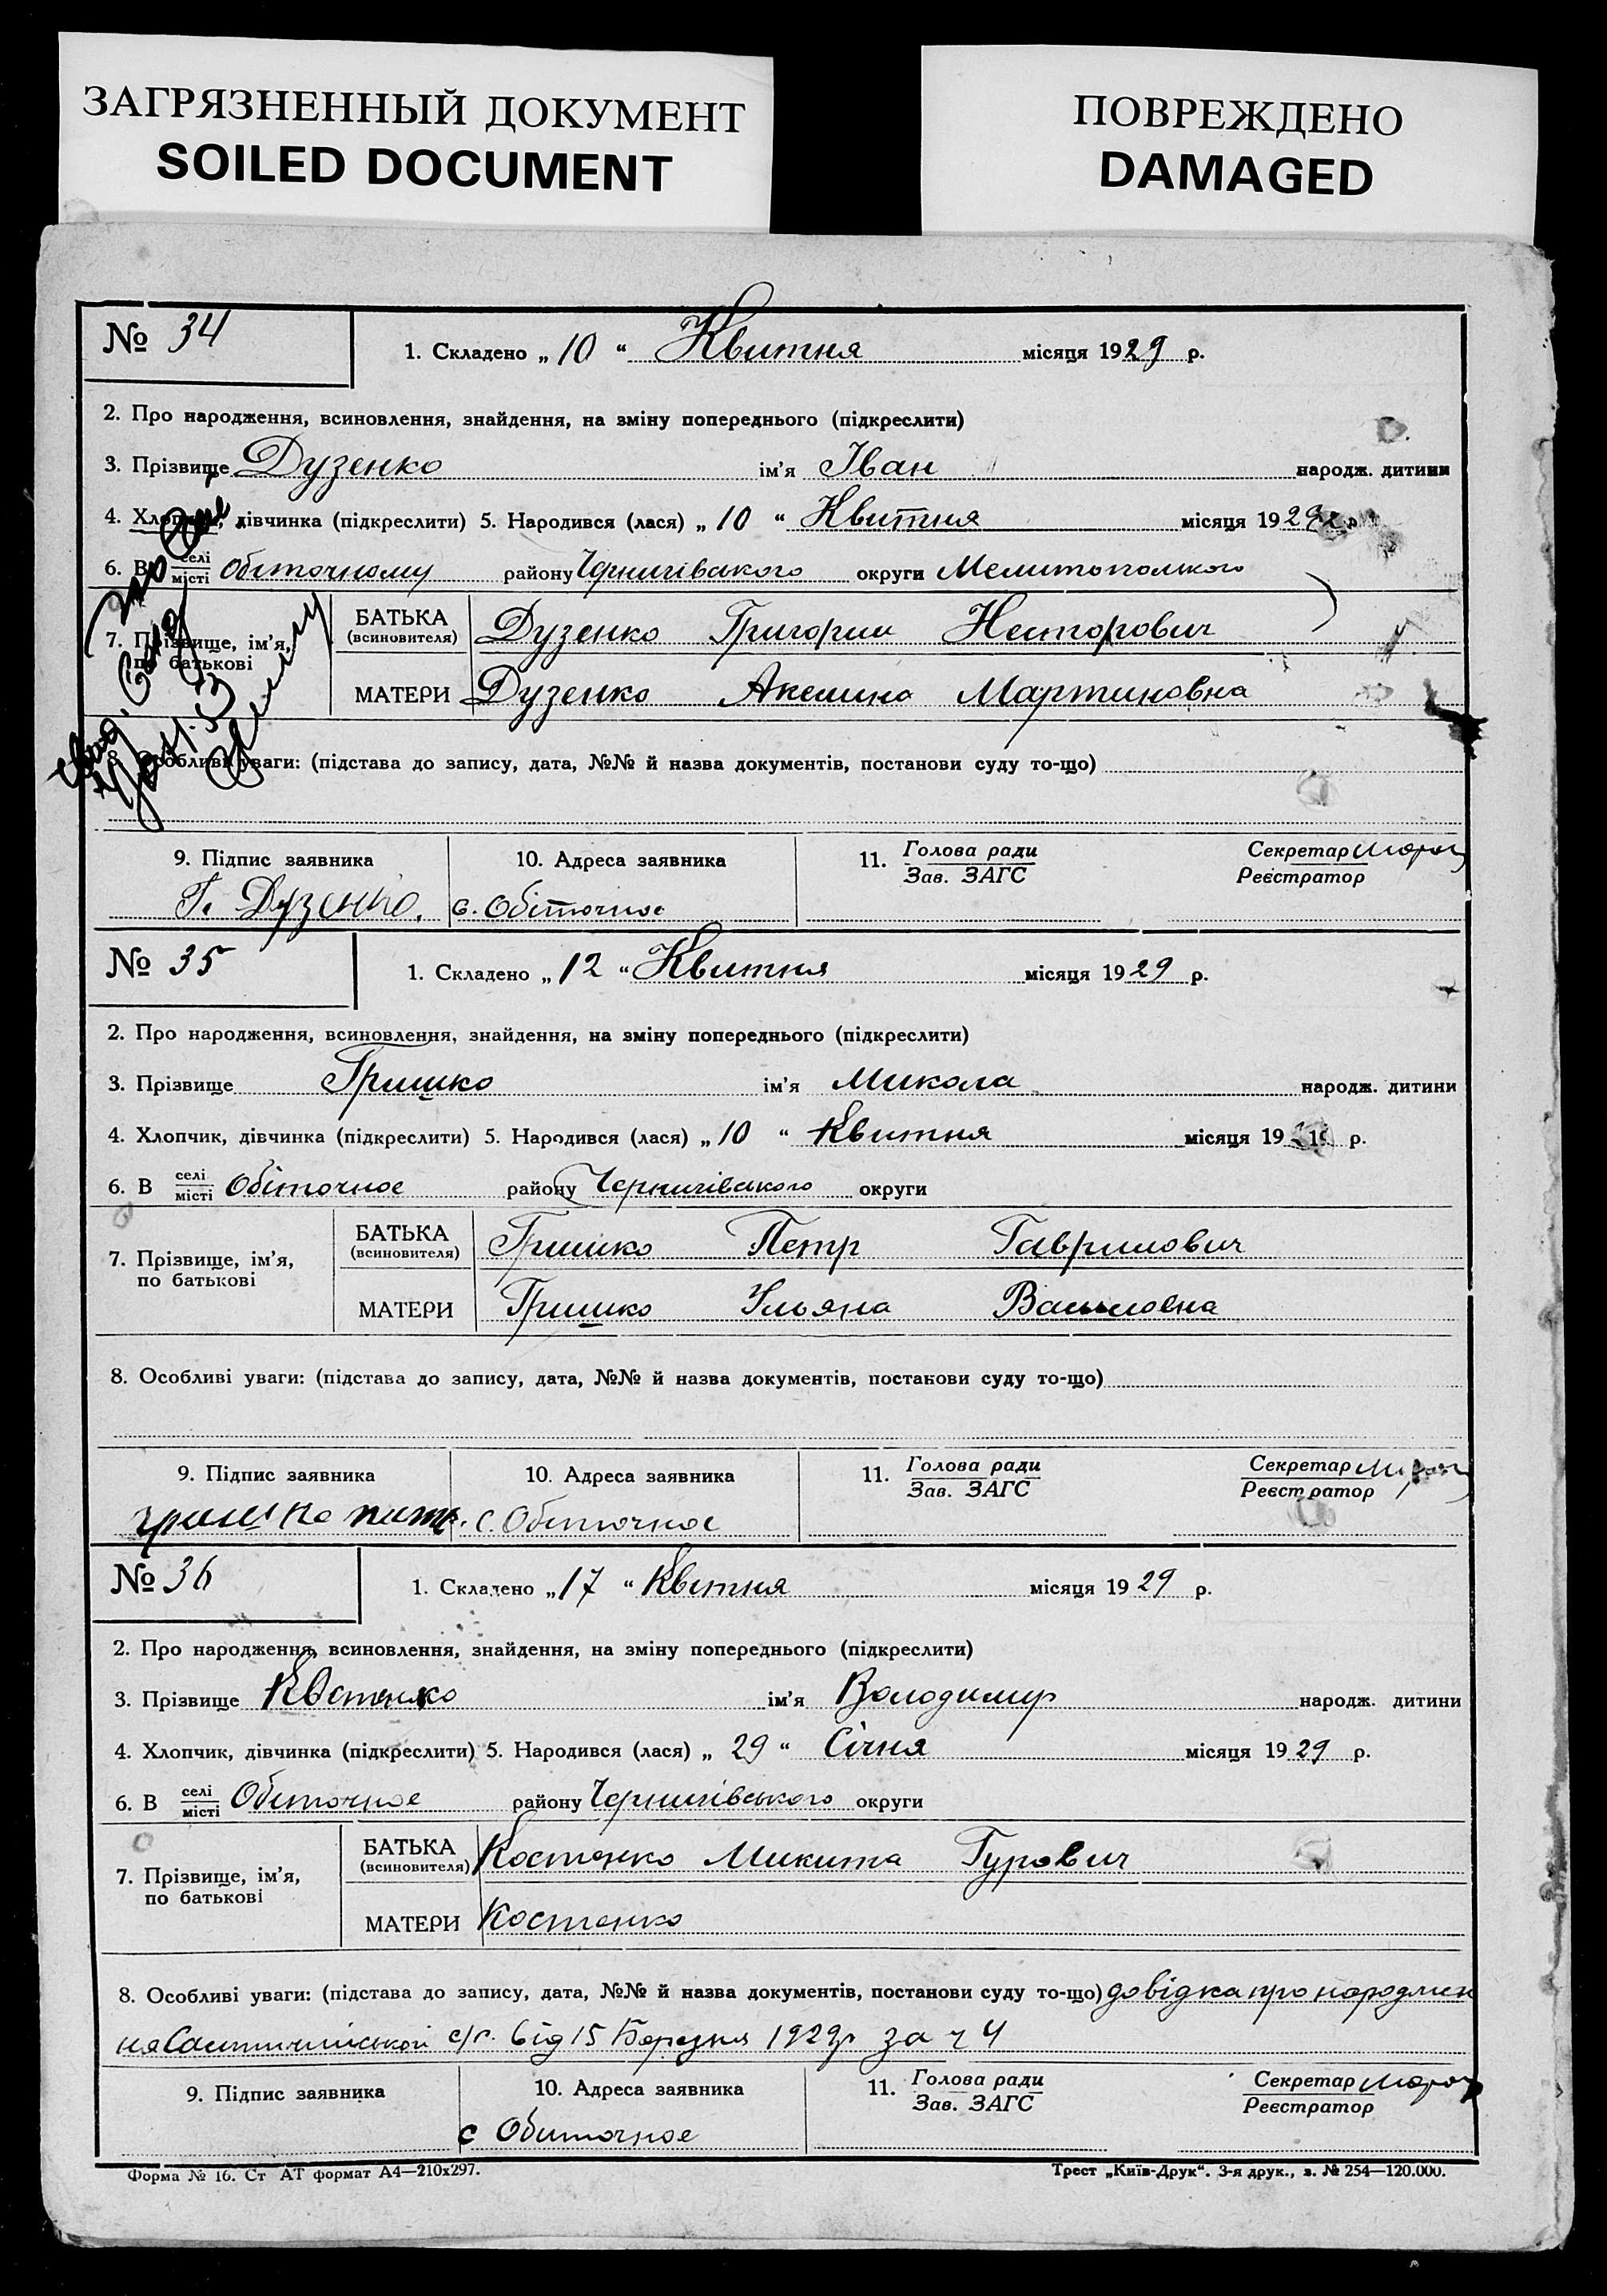 ЗАГРЯЗНЕННЫЙ ДОКУМЕНТ
SOILED DOCUMENT
ПОВРЕЖДЕНО
DAMAGED
№ 34
1. Складено „ 10 “ Квитня місяця 1929 р.
2. Про народження, всиновлення, знайдення, на зміну попереднього (підкреслити)
3. Прізвище Дузенко ім'я Іван народж. дитини
4. Хлопчик, дівчинка (підкреслити) 5. Народився (лася) „ 10 “ Квитня місяця 1929 р.
6. В селі/місті Обіточному району Чернигівського округи Мелитопольского
7. Прізвище, ім'я, по батькові
БАТЬКА (всиновителя) Дузенко Григории Несторович
МАТЕРИ Дузенко Акелина Мартиновна
8. Особливі уваги: (підстава до запису, дата, №№ й назва документів, постанови суду то-що)
9. Підпис заявника 10. Адреса заявника 11. Голова ради Секретар
Зав. ЗАГС Реєстратор
Г. Дузенко. с. Обіточное
№ 35
1. Складено „ 12 “ Квитня місяця 1929 р.
2. Про народження, всиновлення, знайдення, на зміну попереднього (підкреслити)
3. Прізвище Гришко ім'я Микола народж. дитини
4. Хлопчик, дівчинка (підкреслити) 5. Народився (лася) „ 10 “ Квитня місяця 19 р.
6. В селі/місті Обіточное району Чернигівського округи
7. Прізвище, ім'я, по батькові
БАТЬКА (всиновителя) Гришко Петр Гаврилович
МАТЕРИ Гришко Ульяна Васыловна
8. Особливі уваги: (підстава до запису, дата, №№ й назва документів, постанови суду то-що)
9. Підпис заявника 10. Адреса заявника 11. Голова ради Секретар
Зав. ЗАГС Реєстратор
гришко с. Обиточное
№ 36
1. Складено „ 17 “ Квітня місяця 1929 р.
2. Про народження, всиновлення, знайдення, на зміну попереднього (підкреслити)
3. Прізвище Костенко ім'я Володимир народж. дитини
4. Хлопчик, дівчинка (підкреслити) 5. Народився (лася) „ 29 “ Січня місяця 1929 р.
6. В селі/місті Обиточное району Чернигівського округи
7. Прізвище, ім'я, по батькові
БАТЬКА (всиновителя) Костенко Микита Гурович
МАТЕРИ Костенко
8. Особливі уваги: (підстава до запису, дата, №№ й назва документів, постанови суду то-що) довідка про народжен
ня с/р. від 15 Березня 1929р за ч 4
9. Підпис заявника 10. Адреса заявника 11. Голова ради Секретар
Зав. ЗАГС Реєстратор
с Обиточное
Форма № 16. Ст АТ формат А4—210х297. Трест „Київ-Друк“. 3-я друк., з. № 254—120.000.